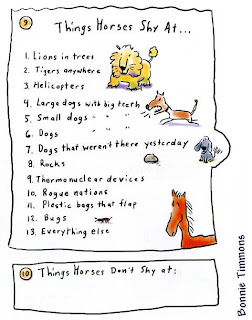 9
Things Horses Shy At...
1. Lions in trees
2. Tigers anywhere
3. Helicopters
4. Large dogs with big teeth
5. Small dogs " " "
6. Dogs
7. Dogs that weren't there yesterday
8. Rocks
9. Thermonuclear devices
10. Rogue nations
11. Plastic bags that flap
12. Bugs
13. Everything else
10
Things Horses Don't Shy at:
Bonnie Timmons